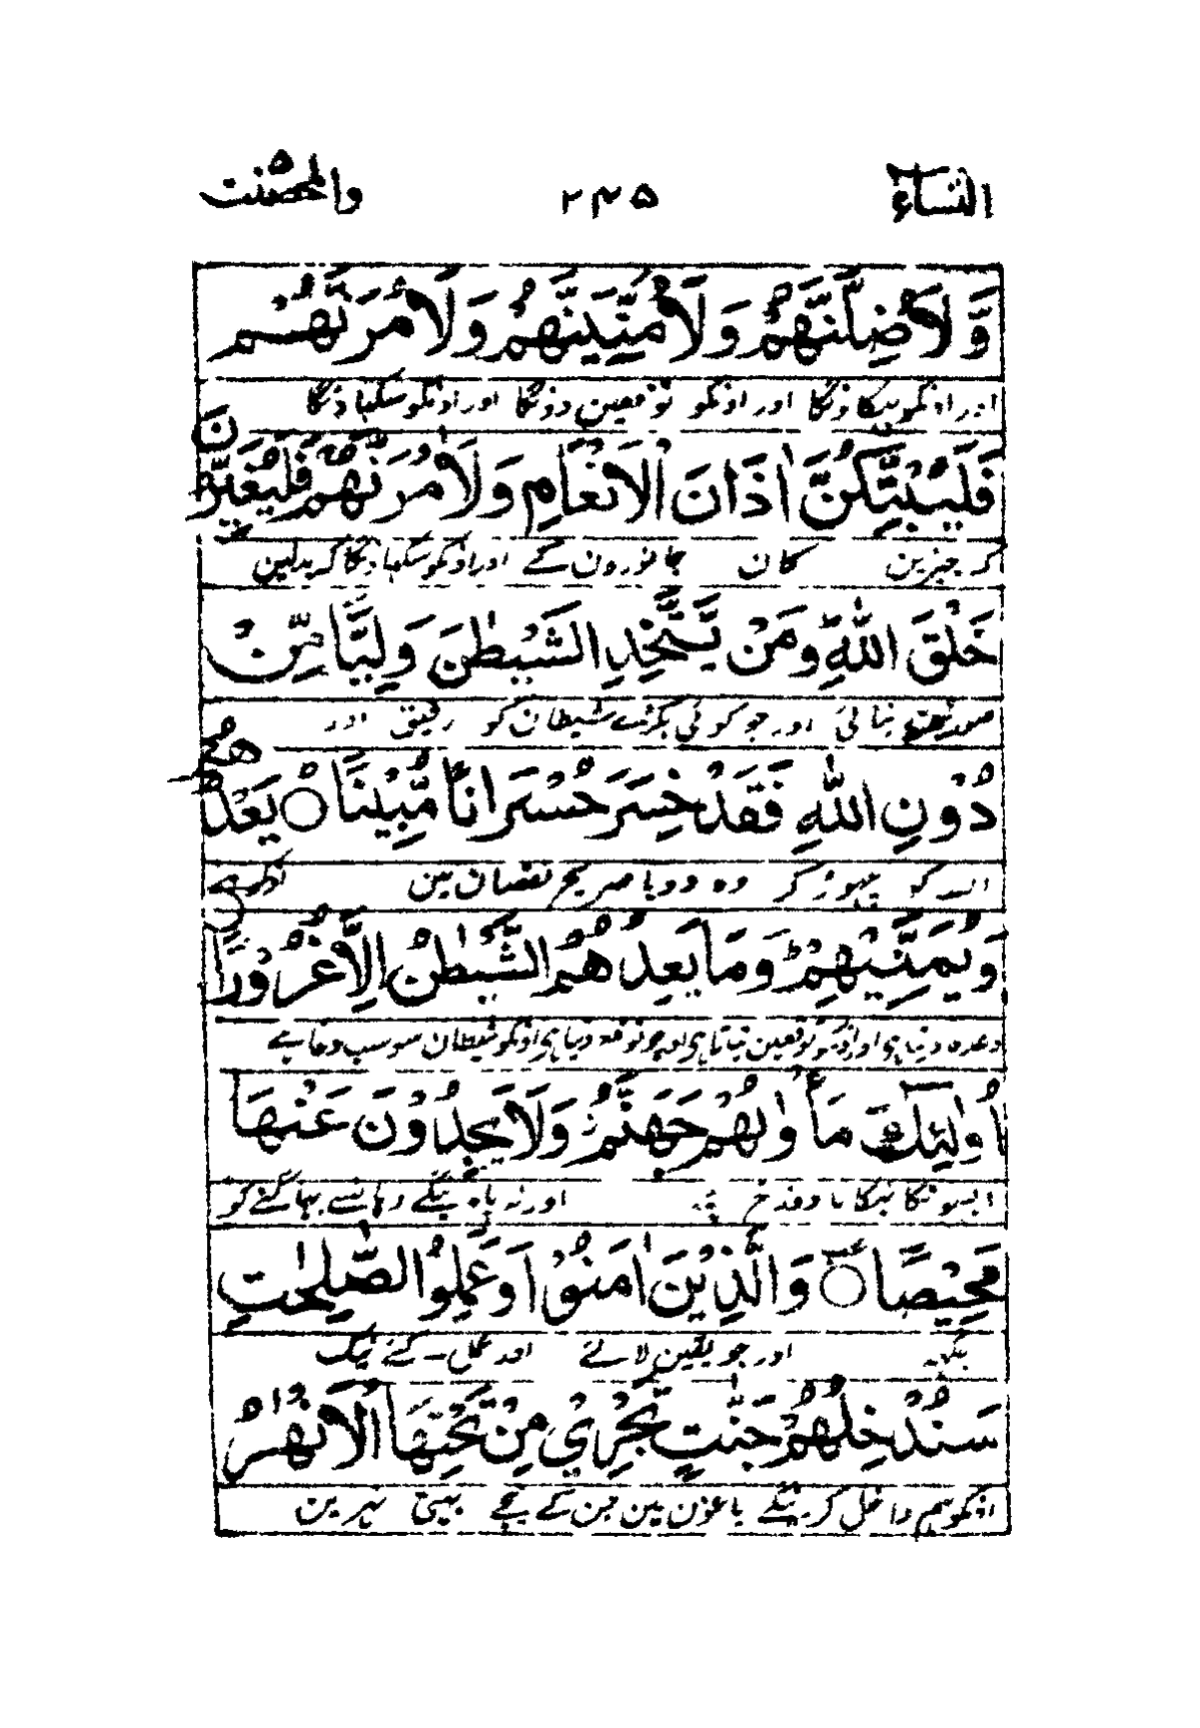 النساء ۲۴۵ والمحصنت ۵
وَّلَاُضِلَّنَّهُمْ وَلَاُمَنِّيَنَّهُمْ وَلَاٰمُرَنَّهُمْ
اور اونکو بہکاؤنگا اور اونکو توقعین دونگا اور اونکو سکھاؤنگا
فَلَيُبَتِّكُنَّ اٰذَانَ الْاَنْعَامِ وَلَاٰمُرَنَّهُمْ فَلَيُغَيِّرُنَّ
کہ چیرین کان جانورون کے اور اونکو سکھاؤنگا کہ بدلین
خَلْقَ اللّٰهِ ؕ وَمَنْ يَّتَّخِذِ الشَّيْطٰنَ وَلِيًّا مِّنْ
صورتین بنائی اور جو کوئی پکڑے شیطان کو رفیق اور
دُوْنِ اللّٰهِ فَقَدْ خَسِرَ خُسْرَانًا مُّبِيْنًا ۝ يَعِدُهُمْ
اللہ کو چھوڑ کر وہ ڈوبا صریح نقصان مین
وَيُمَنِّيْهِمْ ؕ وَمَا يَعِدُهُمُ الشَّيْطٰنُ اِلَّا غُرُوْرًا
وعدہ دیتا ہی اور اونکو توقعین بتاتا ہی اور جو توقع دیتا ہی اونکو شیطان سو سب دغا ہے
اُولٰٓئِكَ مَاْوٰىهُمْ جَهَنَّمُ وَلَا يَجِدُوْنَ عَنْهَا
ایسونکا ٹھکانا دوزخ ہے اور نہ پاوینگے وہانسے بھاگنے کو
مَحِيْصًا ۝ وَالَّذِيْنَ اٰمَنُوْا وَعَمِلُوا الصّٰلِحٰتِ
جگہہ اور جو یقین لائے اور عمل کئے نیک
سَنُدْخِلُهُمْ جَنّٰتٍ تَجْرِيْ مِنْ تَحْتِهَا الْاَنْهٰرُ
اونکو ہم داخل کرینگے باغون مین جن کے نیچے بہتی نہرین